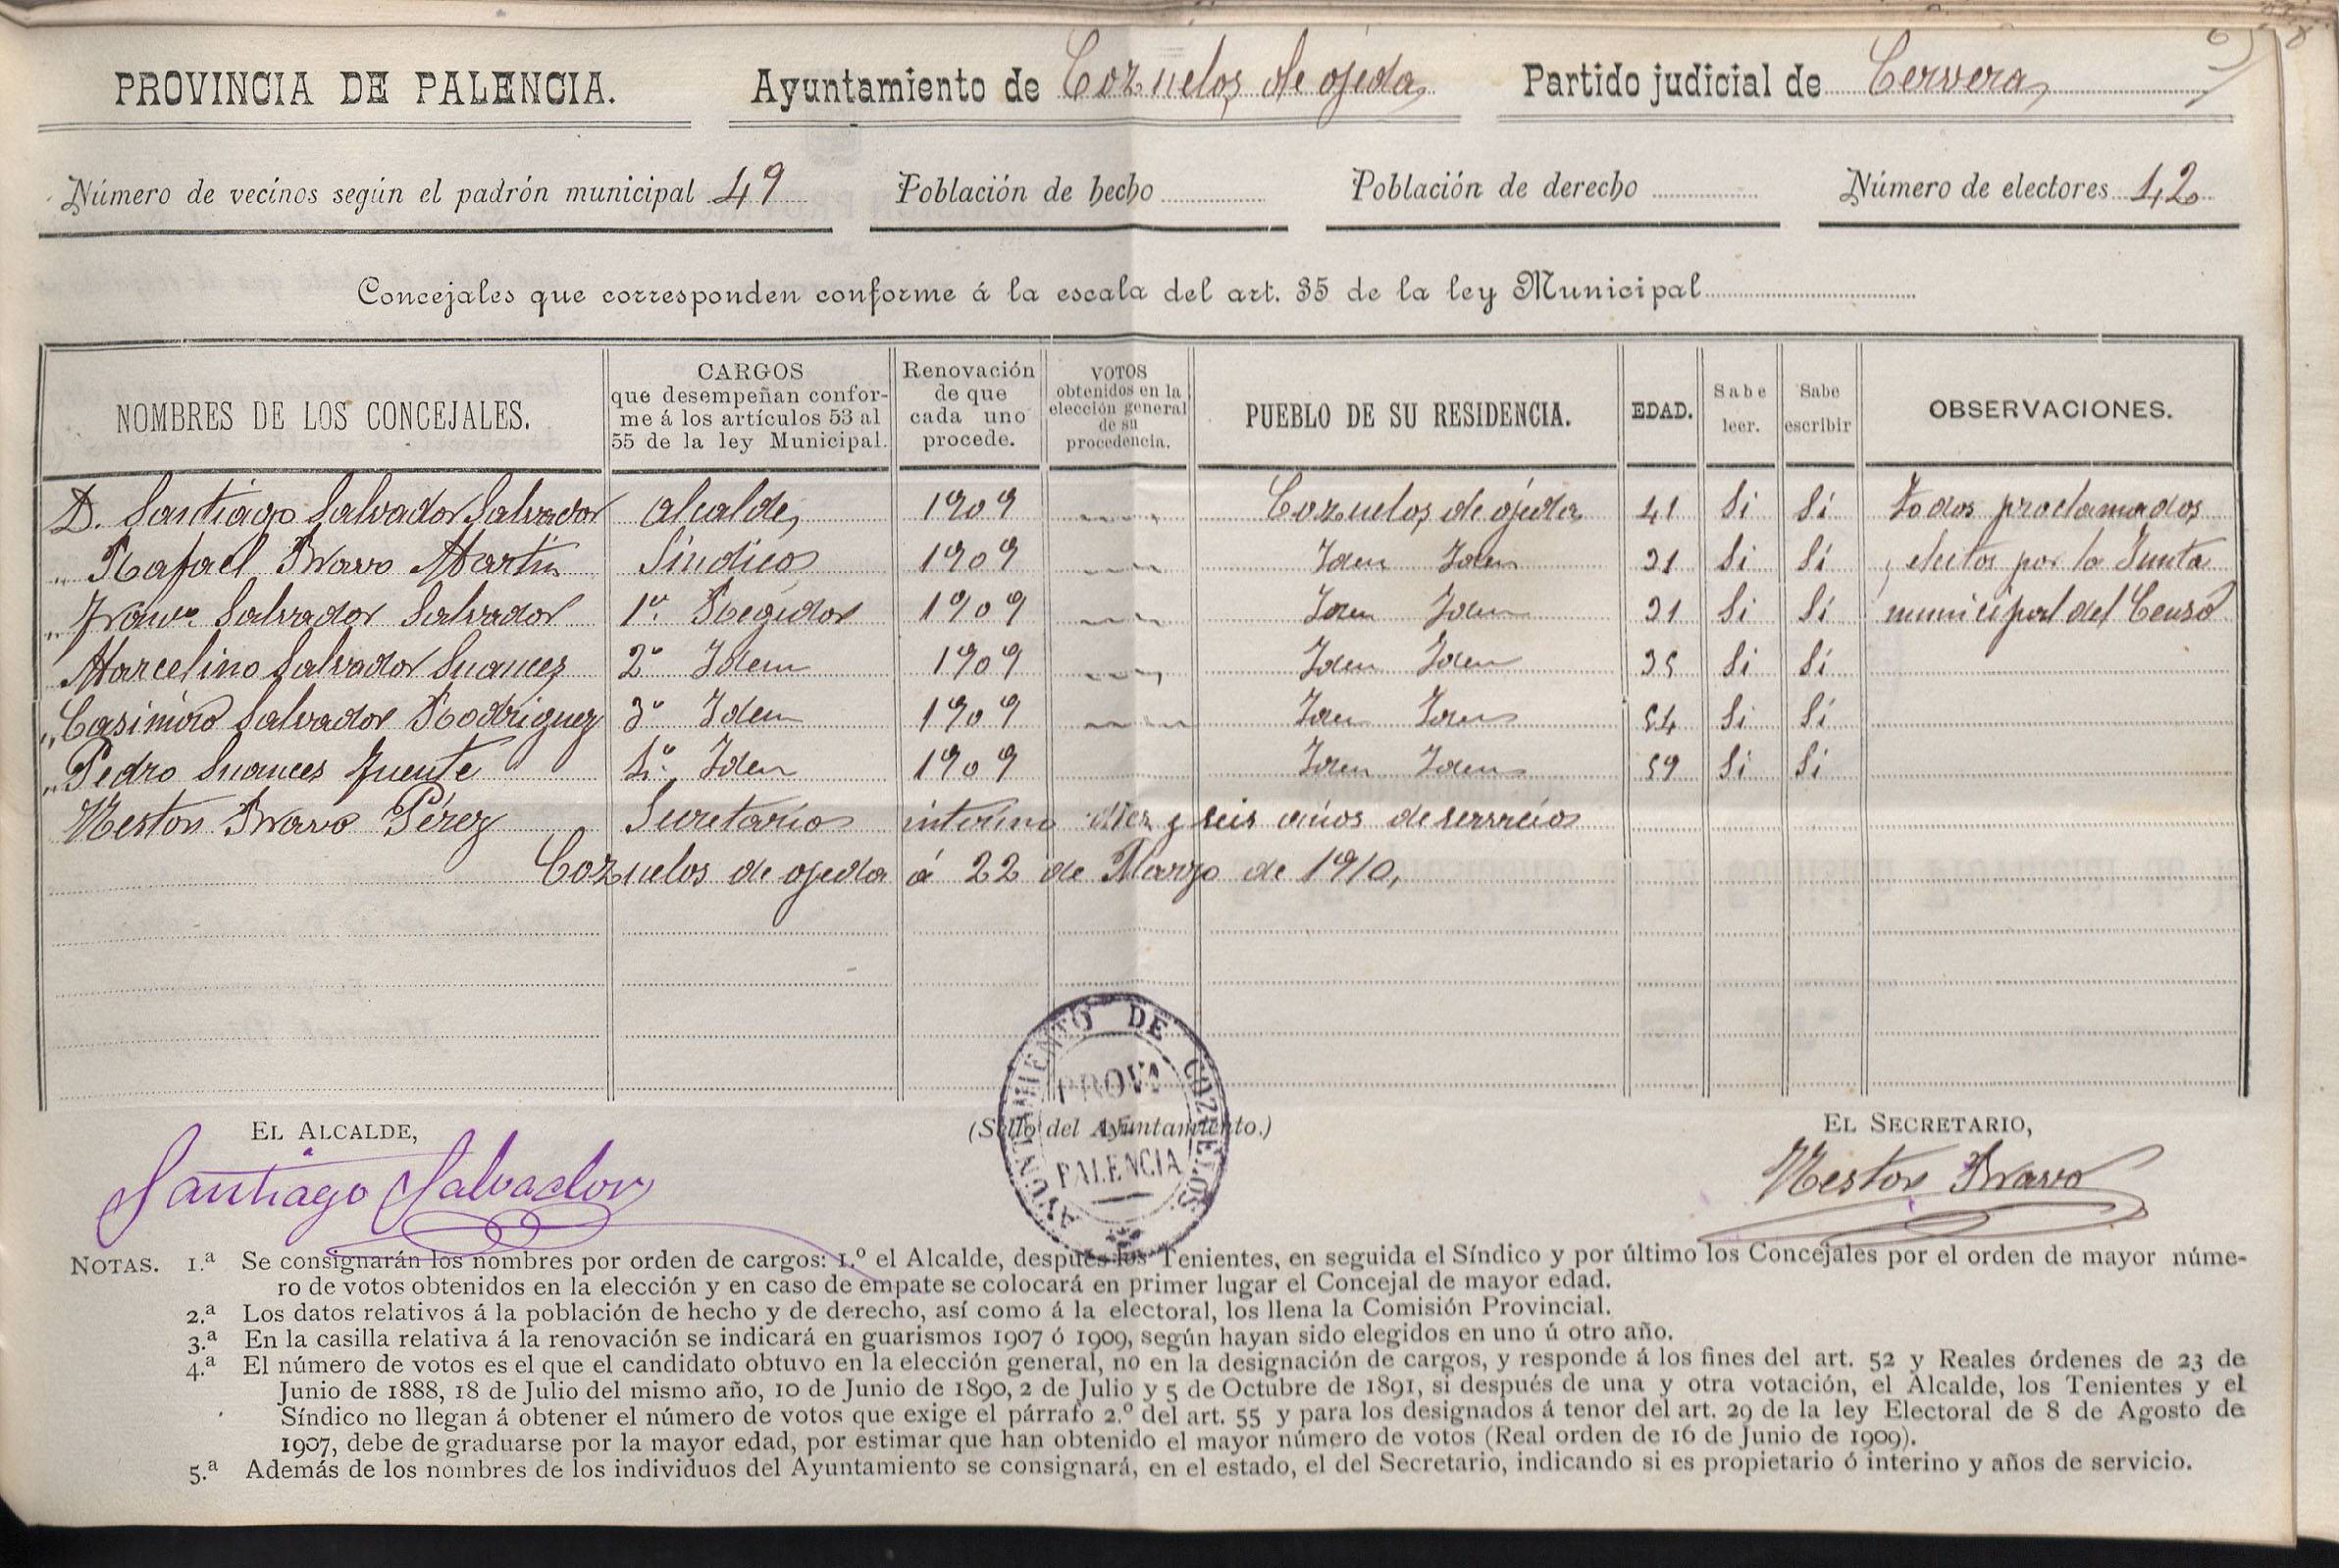 PROVINCIA DE PALENCIA. Ayuntamiento de Cozuelos de ojeda Partido judicial de Cervera
Número de vecinos según el padrón municipal 49 Población de hecho Población de derecho Número de electores 42
Concejales que corresponden conforme á la escala del art. 35 de la ley Municipal
NOMBRES DE LOS CONCEJALES. CARGOS que desempeñan conforme á los artículos 53 al 55 de la ley Municipal. Renovación de que cada uno procede. VOTOS obtenidos en la elección general de su procedencia. PUEBLO DE SU RESIDENCIA. EDAD. Sabe leer. Sabe escribir OBSERVACIONES.
D. Santiago Salvador Salvador Alcalde 1909 Cozuelos de ojeda 41 Si Sí Todos proclamados
" Rafael Bravo Martin Síndico 1909 Idem Idem 31 Si Sí electos por la Junta
" Franco Salvador Salvador 1er Regidor 1909 Idem Idem 31 Si Sí municipal del Censo
Marcelino Salvador Suances 2º Idem 1909 Idem Idem 35 Si Sí
" Casimiro Salvador Rodriguez 3º Idem 1909 Idem Idem 54 Si Sí
" Pedro Suances fuente 4º Idem 1909 Idem Idem 59 Si Sí
Nestor Bravo Pérez Secretario interino diez y seis años de servicio
Cozuelos de ojeda á 22 de Marzo de 1910,
EL ALCALDE, (Sello del Ayuntamiento.) EL SECRETARIO,
Santiago Salvador AYUNTAMIENTO DE COZUELOS PROVA DE PALENCIA Nestor Bravo
NOTAS. 1.ª Se consignarán los nombres por orden de cargos: 1.º el Alcalde, después los Tenientes, en seguida el Síndico y por último los Concejales por el orden de mayor núme-
ro de votos obtenidos en la elección y en caso de empate se colocará en primer lugar el Concejal de mayor edad.
2.ª Los datos relativos á la población de hecho y de derecho, así como á la electoral, los llena la Comisión Provincial.
3.ª En la casilla relativa á la renovación se indicará en guarismos 1907 ó 1909, según hayan sido elegidos en uno ú otro año.
4.ª El número de votos es el que el candidato obtuvo en la elección general, no en la designación de cargos, y responde á los fines del art. 52 y Reales órdenes de 23 de
Junio de 1888, 18 de Julio del mismo año, 10 de Junio de 1890, 2 de Julio y 5 de Octubre de 1891, si después de una y otra votación, el Alcalde, los Tenientes y el
Síndico no llegan á obtener el número de votos que exige el párrafo 2.º del art. 55 y para los designados á tenor del art. 29 de la ley Electoral de 8 de Agosto de
1907, debe de graduarse por la mayor edad, por estimar que han obtenido el mayor número de votos (Real orden de 16 de Junio de 1909).
5.ª Además de los nombres de los individuos del Ayuntamiento se consignará, en el estado, el del Secretario, indicando si es propietario ó interino y años de servicio.